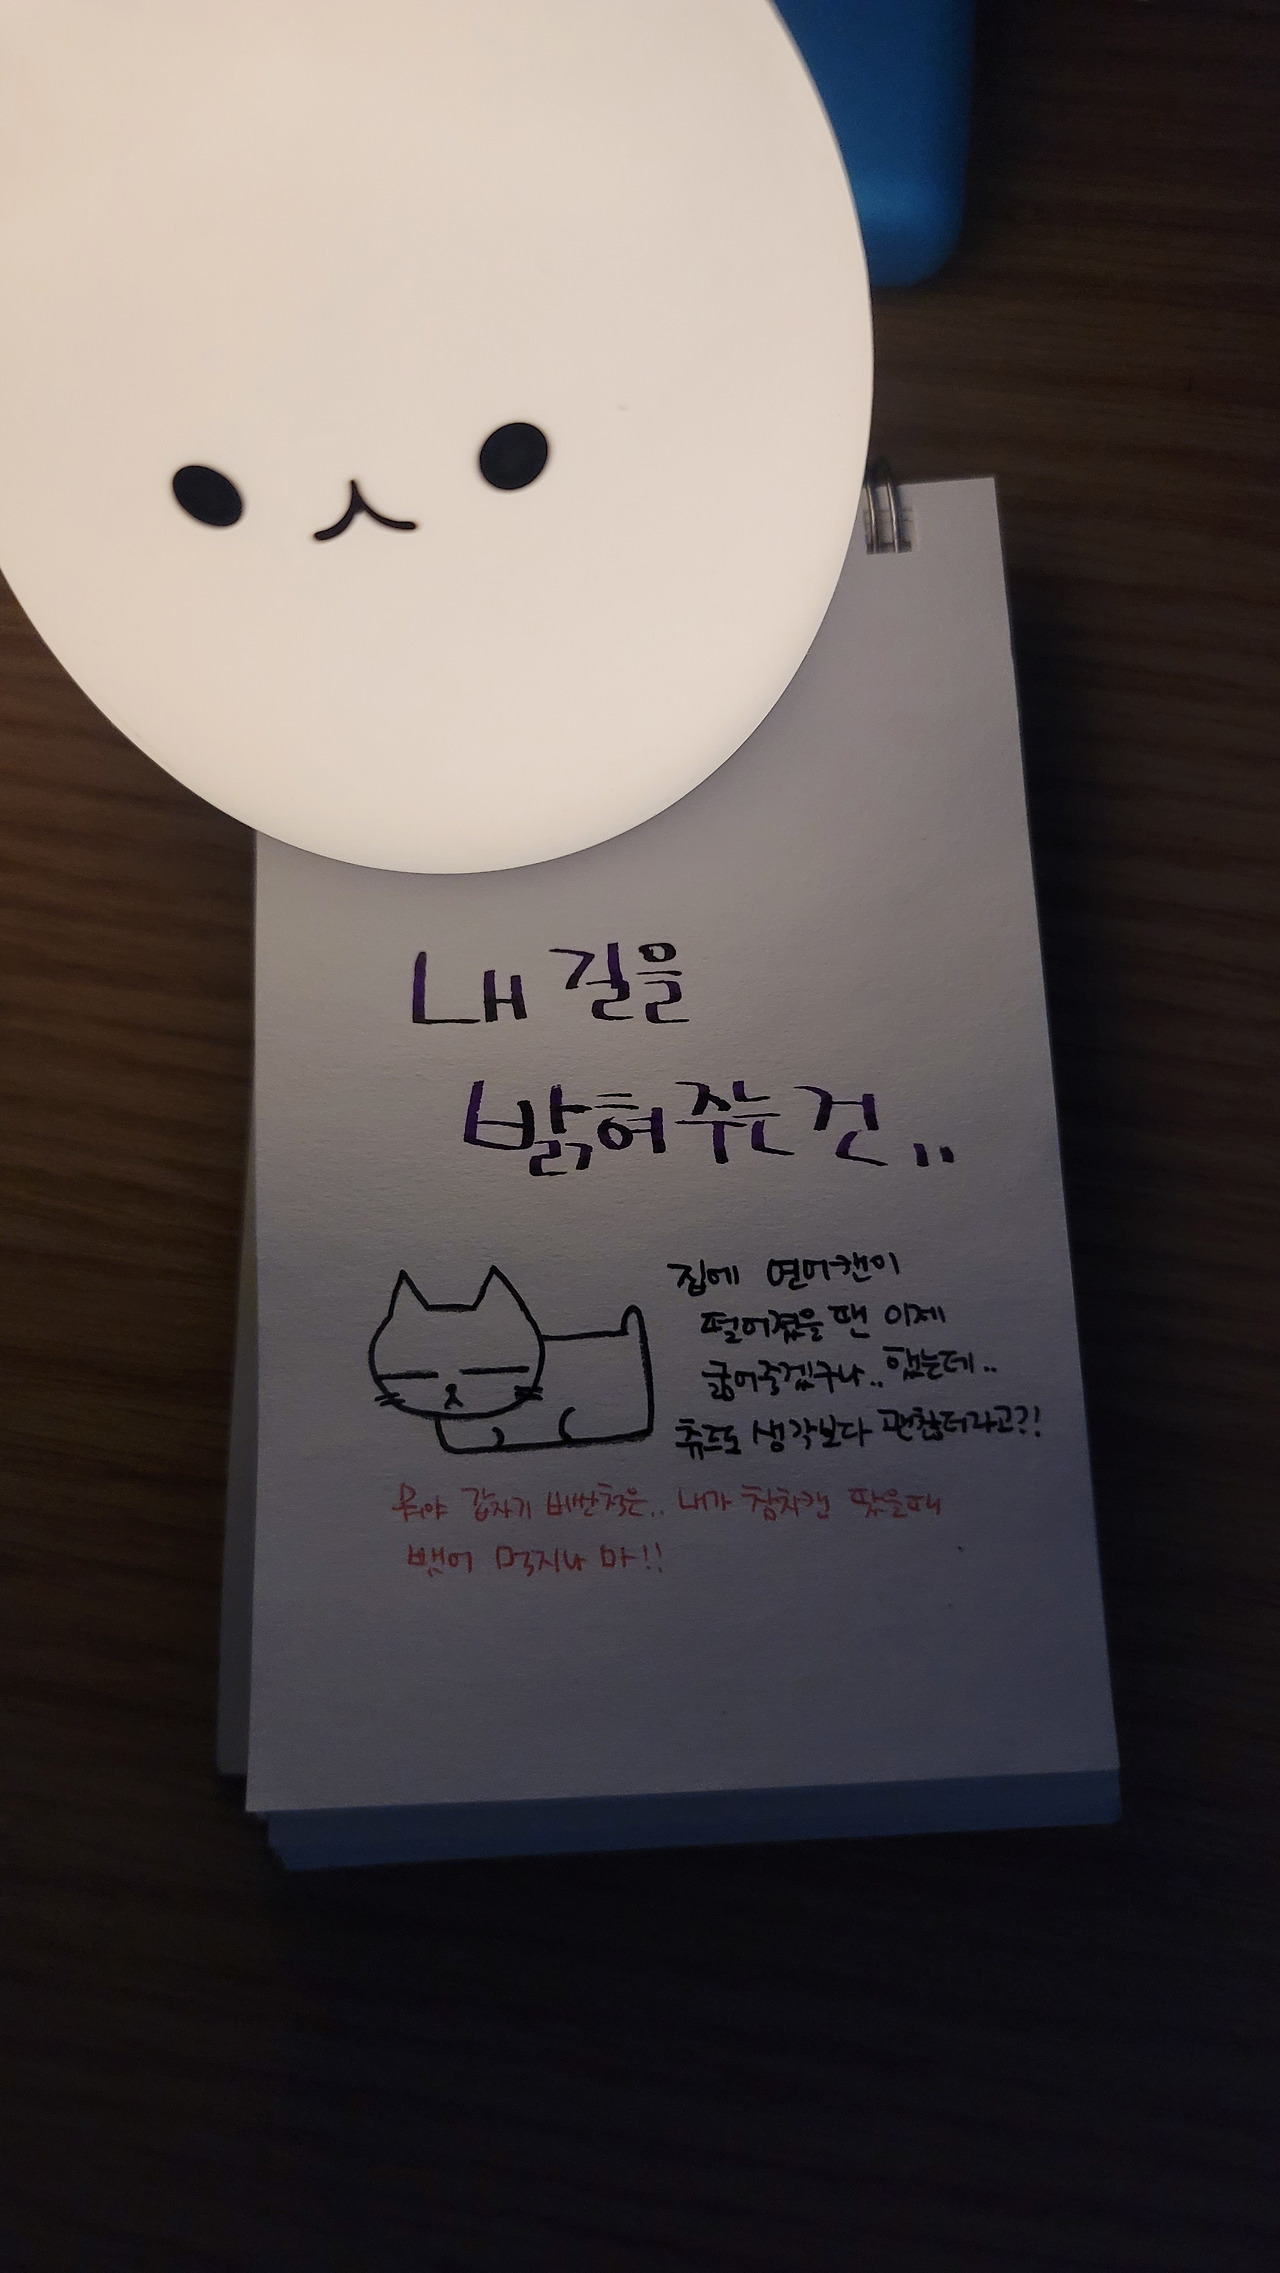 내 길을
밝혀주는 건..
집에 연어캔이
떨어졌을 땐 이제
굶어죽겠구나.. 했는데..
츄르도 생각보다 괜찮더라고?!
뭐야 갑자기 비싼척은.. 내가 참치캔 땄을때
뱉어 먹지나 마!!